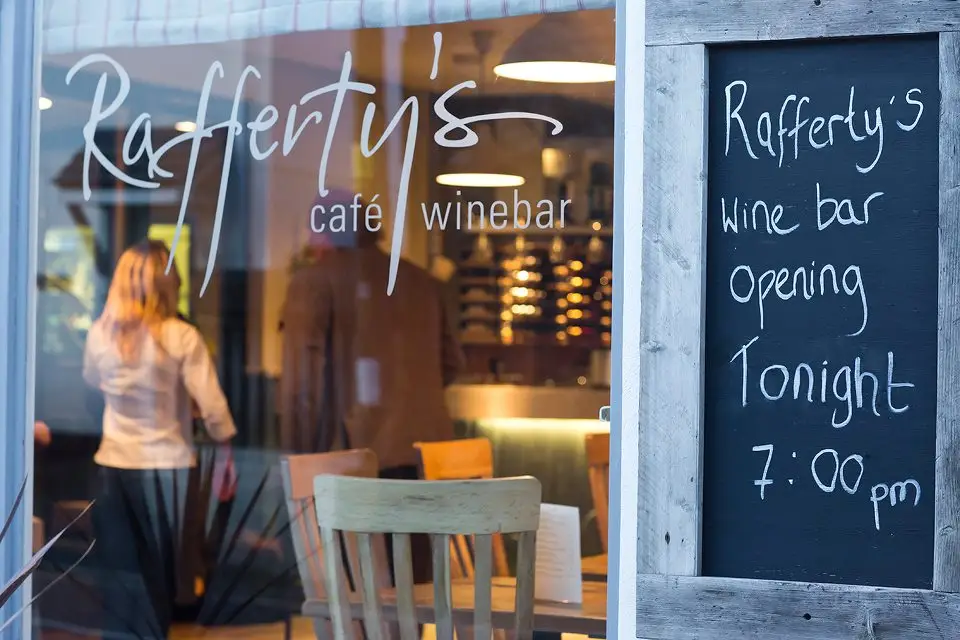 Rafferty's
café winebar
Rafferty's
wine bar
opening
Tonight
7:00 pm